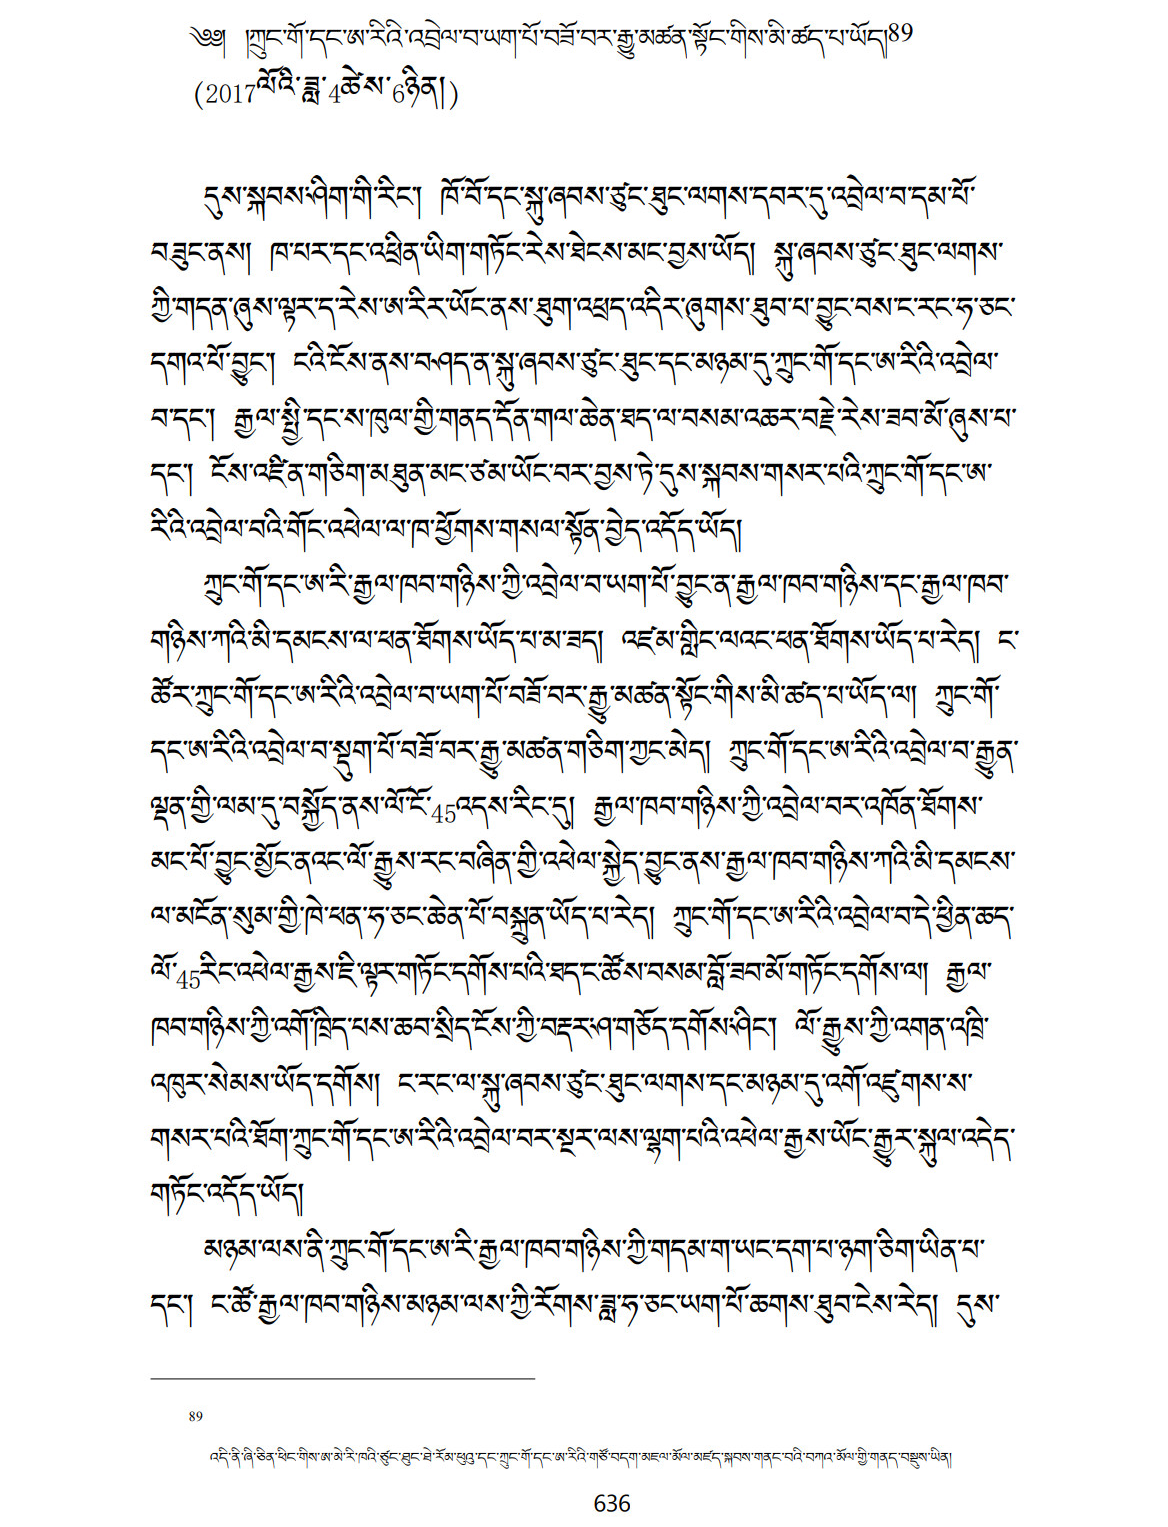 ༄༅། །ཀྲུང་གོ་དང་ཨ་རིའི་འབྲེལ་བ་ཡག་པོ་བཟོ་བར་རྒྱུ་མཚན་སྟོང་གིས་མི་ཚད་པ་ཡོད།89
(2017ལོའི་ཟླ་4ཚེས་6ཉིན།)
དུས་སྐབས་ཤིག་གི་རིང་། ཁོ་བོ་དང་སྐུ་ཞབས་ཙུང་ཐུང་ལགས་དབར་དུ་འབྲེལ་བ་དམ་པོ་
བཟུང་ནས། ཁ་པར་དང་འཕྲིན་ཡིག་གཏོང་རེས་ཐེངས་མང་བྱས་ཡོད། སྐུ་ཞབས་ཙུང་ཐུང་ལགས་
ཀྱི་གདན་ཞུས་ལྟར་ད་རེས་ཨ་རིར་ཡོང་ནས་ཐུག་འཕྲད་འདིར་ཞུགས་ཐུབ་པ་བྱུང་བས་ང་རང་ཧ་ཅང་
དགའ་པོ་བྱུང་། ངའི་ངོས་ནས་བཤད་ན་སྐུ་ཞབས་ཙུང་ཐུང་དང་མཉམ་དུ་ཀྲུང་གོ་དང་ཨ་རིའི་འབྲེལ་
བ་དང་། རྒྱལ་སྤྱི་དང་ས་ཁུལ་གྱི་གནད་དོན་གལ་ཆེན་ཐད་ལ་བསམ་འཆར་བརྗེ་རེས་ཟབ་མོ་ཞུས་པ་
དང་། ངོས་འཛིན་གཅིག་མཐུན་མང་ཙམ་ཡོང་བར་བྱས་ཏེ་དུས་སྐབས་གསར་པའི་ཀྲུང་གོ་དང་ཨ་
རིའི་འབྲེལ་བའི་གོང་འཕེལ་ལ་ཁ་ཕྱོགས་གསལ་སྟོན་བྱེད་འདོད་ཡོད།
ཀྲུང་གོ་དང་ཨ་རི་རྒྱལ་ཁབ་གཉིས་ཀྱི་འབྲེལ་བ་ཡག་པོ་བྱུང་ན་རྒྱལ་ཁབ་གཉིས་དང་རྒྱལ་ཁབ་
གཉིས་ཀའི་མི་དམངས་ལ་ཕན་ཐོགས་ཡོད་པ་མ་ཟད། འཛམ་གླིང་ལའང་ཕན་ཐོགས་ཡོད་པ་རེད། ང་
ཚོར་ཀྲུང་གོ་དང་ཨ་རིའི་འབྲེལ་བ་ཡག་པོ་བཟོ་བར་རྒྱུ་མཚན་སྟོང་གིས་མི་ཚད་པ་ཡོད་ལ། ཀྲུང་གོ་
དང་ཨ་རིའི་འབྲེལ་བ་སྡུག་པོ་བཟོ་བར་རྒྱུ་མཚན་གཅིག་ཀྱང་མེད། ཀྲུང་གོ་དང་ཨ་རིའི་འབྲེལ་བ་རྒྱུན་
ལྡན་གྱི་ལམ་དུ་བསྐྱོད་ནས་ལོ་ངོ་45འདས་རིང་དུ། རྒྱལ་ཁབ་གཉིས་ཀྱི་འབྲེལ་བར་འཁོན་ཐོགས་
མང་པོ་བྱུང་མྱོང་ནའང་ལོ་རྒྱུས་རང་བཞིན་གྱི་འཕེལ་སྐྱེད་བྱུང་ནས་རྒྱལ་ཁབ་གཉིས་ཀའི་མི་དམངས་
ལ་མངོན་སུམ་གྱི་ཁེ་ཕན་ཧ་ཅང་ཆེན་པོ་བསྐྲུན་ཡོད་པ་རེད། ཀྲུང་གོ་དང་ཨ་རིའི་འབྲེལ་བ་དེ་ཕྱིན་ཆད་
ལོ་45རིང་འཕེལ་རྒྱས་ཇི་ལྟར་གཏོང་དགོས་པའི་ཐད་ང་ཚོས་བསམ་བློ་ཟབ་མོ་གཏོང་དགོས་ལ། རྒྱལ་
ཁབ་གཉིས་ཀྱི་འགོ་ཁྲིད་པས་ཆབ་སྲིད་ངོས་ཀྱི་བརྡར་ཤ་གཅོད་དགོས་ཤིང་། ལོ་རྒྱུས་ཀྱི་འགན་འཁྲི་
འཁུར་སེམས་ཡོད་དགོས། ང་རང་ལ་སྐུ་ཞབས་ཙུང་ཐུང་ལགས་དང་མཉམ་དུ་འགོ་འཛུགས་ས་
གསར་པའི་ཐོག་ཀྲུང་གོ་དང་ཨ་རིའི་འབྲེལ་བར་སྔར་ལས་ལྷག་པའི་འཕེལ་རྒྱས་ཡོང་རྒྱུར་སྐུལ་འདེད་
གཏོང་འདོད་ཡོད།
མཉམ་ལས་ནི་ཀྲུང་གོ་དང་ཨ་རི་རྒྱལ་ཁབ་གཉིས་ཀྱི་གདམ་ག་ཡང་དག་པ་ཉག་ཅིག་ཡིན་པ་
དང་། ང་ཚོ་རྒྱལ་ཁབ་གཉིས་མཉམ་ལས་ཀྱི་རོགས་ཟླ་ཧ་ཅང་ཡག་པོ་ཆགས་ཐུབ་ངེས་རེད། དུས་
89
འདི་ནི་ཞི་ཅིན་ཕིང་གིས་ཨ་མེ་རི་ཁའི་ཙུང་ཐུང་ཐེ་རོམ་ཕུའུ་དང་ཀྲུང་གོ་དང་ཨ་རིའི་གཙོ་བདག་མཇལ་མོལ་མཛད་སྐབས་གནང་བའི་བཀའ་མོལ་གྱི་གནད་བསྡུས་ཡིན།
636